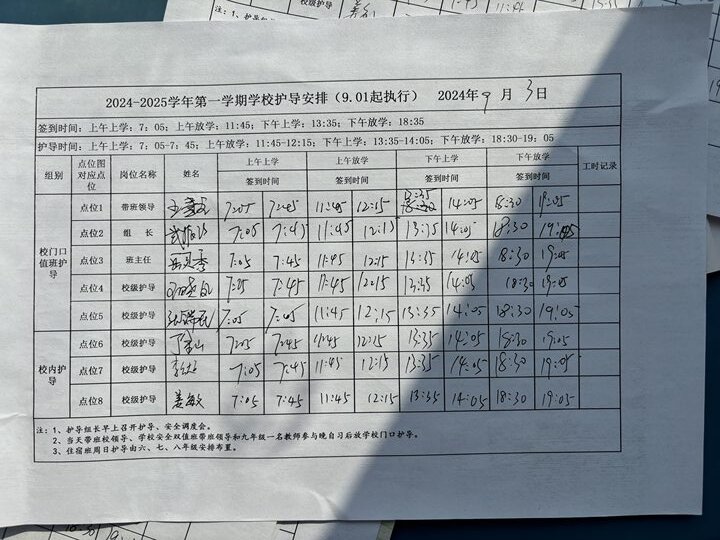 2024-2025学年第一学期学校护导安排（9.01起执行） 2024年 9 月 3 日
签到时间：上午上学：7：05；上午放学：11:45；下午上学：13:35；下午放学：18:35
护导时间：上午上学：7：05-7：45；上午放学：11:45-12:15；下午上学：13:35-14:05；下午放学：18:30-19：05
组别 点位图对应点位 岗位名称 姓名 上午上学 上午放学 下午上学 下午放学 工时记录
签到时间 签到时间 签到时间 签到时间
校门口值班护导
点位1 带班领导 7:05 7:45 11:45 12:15 13:35 14:05 18:30 19:05
点位2 组 长 7:05 7:45 11:45 12:15 13:35 14:05 18:30 19:05
点位3 班主任 7:05 7:45 11:45 12:15 13:35 14:05 18:30 19:05
点位4 校级护导 7:05 7:45 11:45 12:15 13:35 14:05 18:30 19:05
点位5 校级护导 7:05 7:45 11:45 12:15 13:35 14:05 18:30 19:05
校内护导
点位6 校级护导 7:05 7:45 11:45 12:15 13:35 14:05 18:30 19:05
点位7 校级护导 7:05 7:45 11:45 12:15 13:35 14:05 18:30 19:05
点位8 校级护导 姜敏 7:05 7:45 11:45 12:15 13:35 14:05 18:30 19:05
注：1、护导组长早上召开护导、安全调度会。
2、当天带班校领导、学校安全双值班带班领导和九年级一名教师参与晚自习后放学校门口护导。
3、住宿班周日护导由六、七、八年级安排布置。